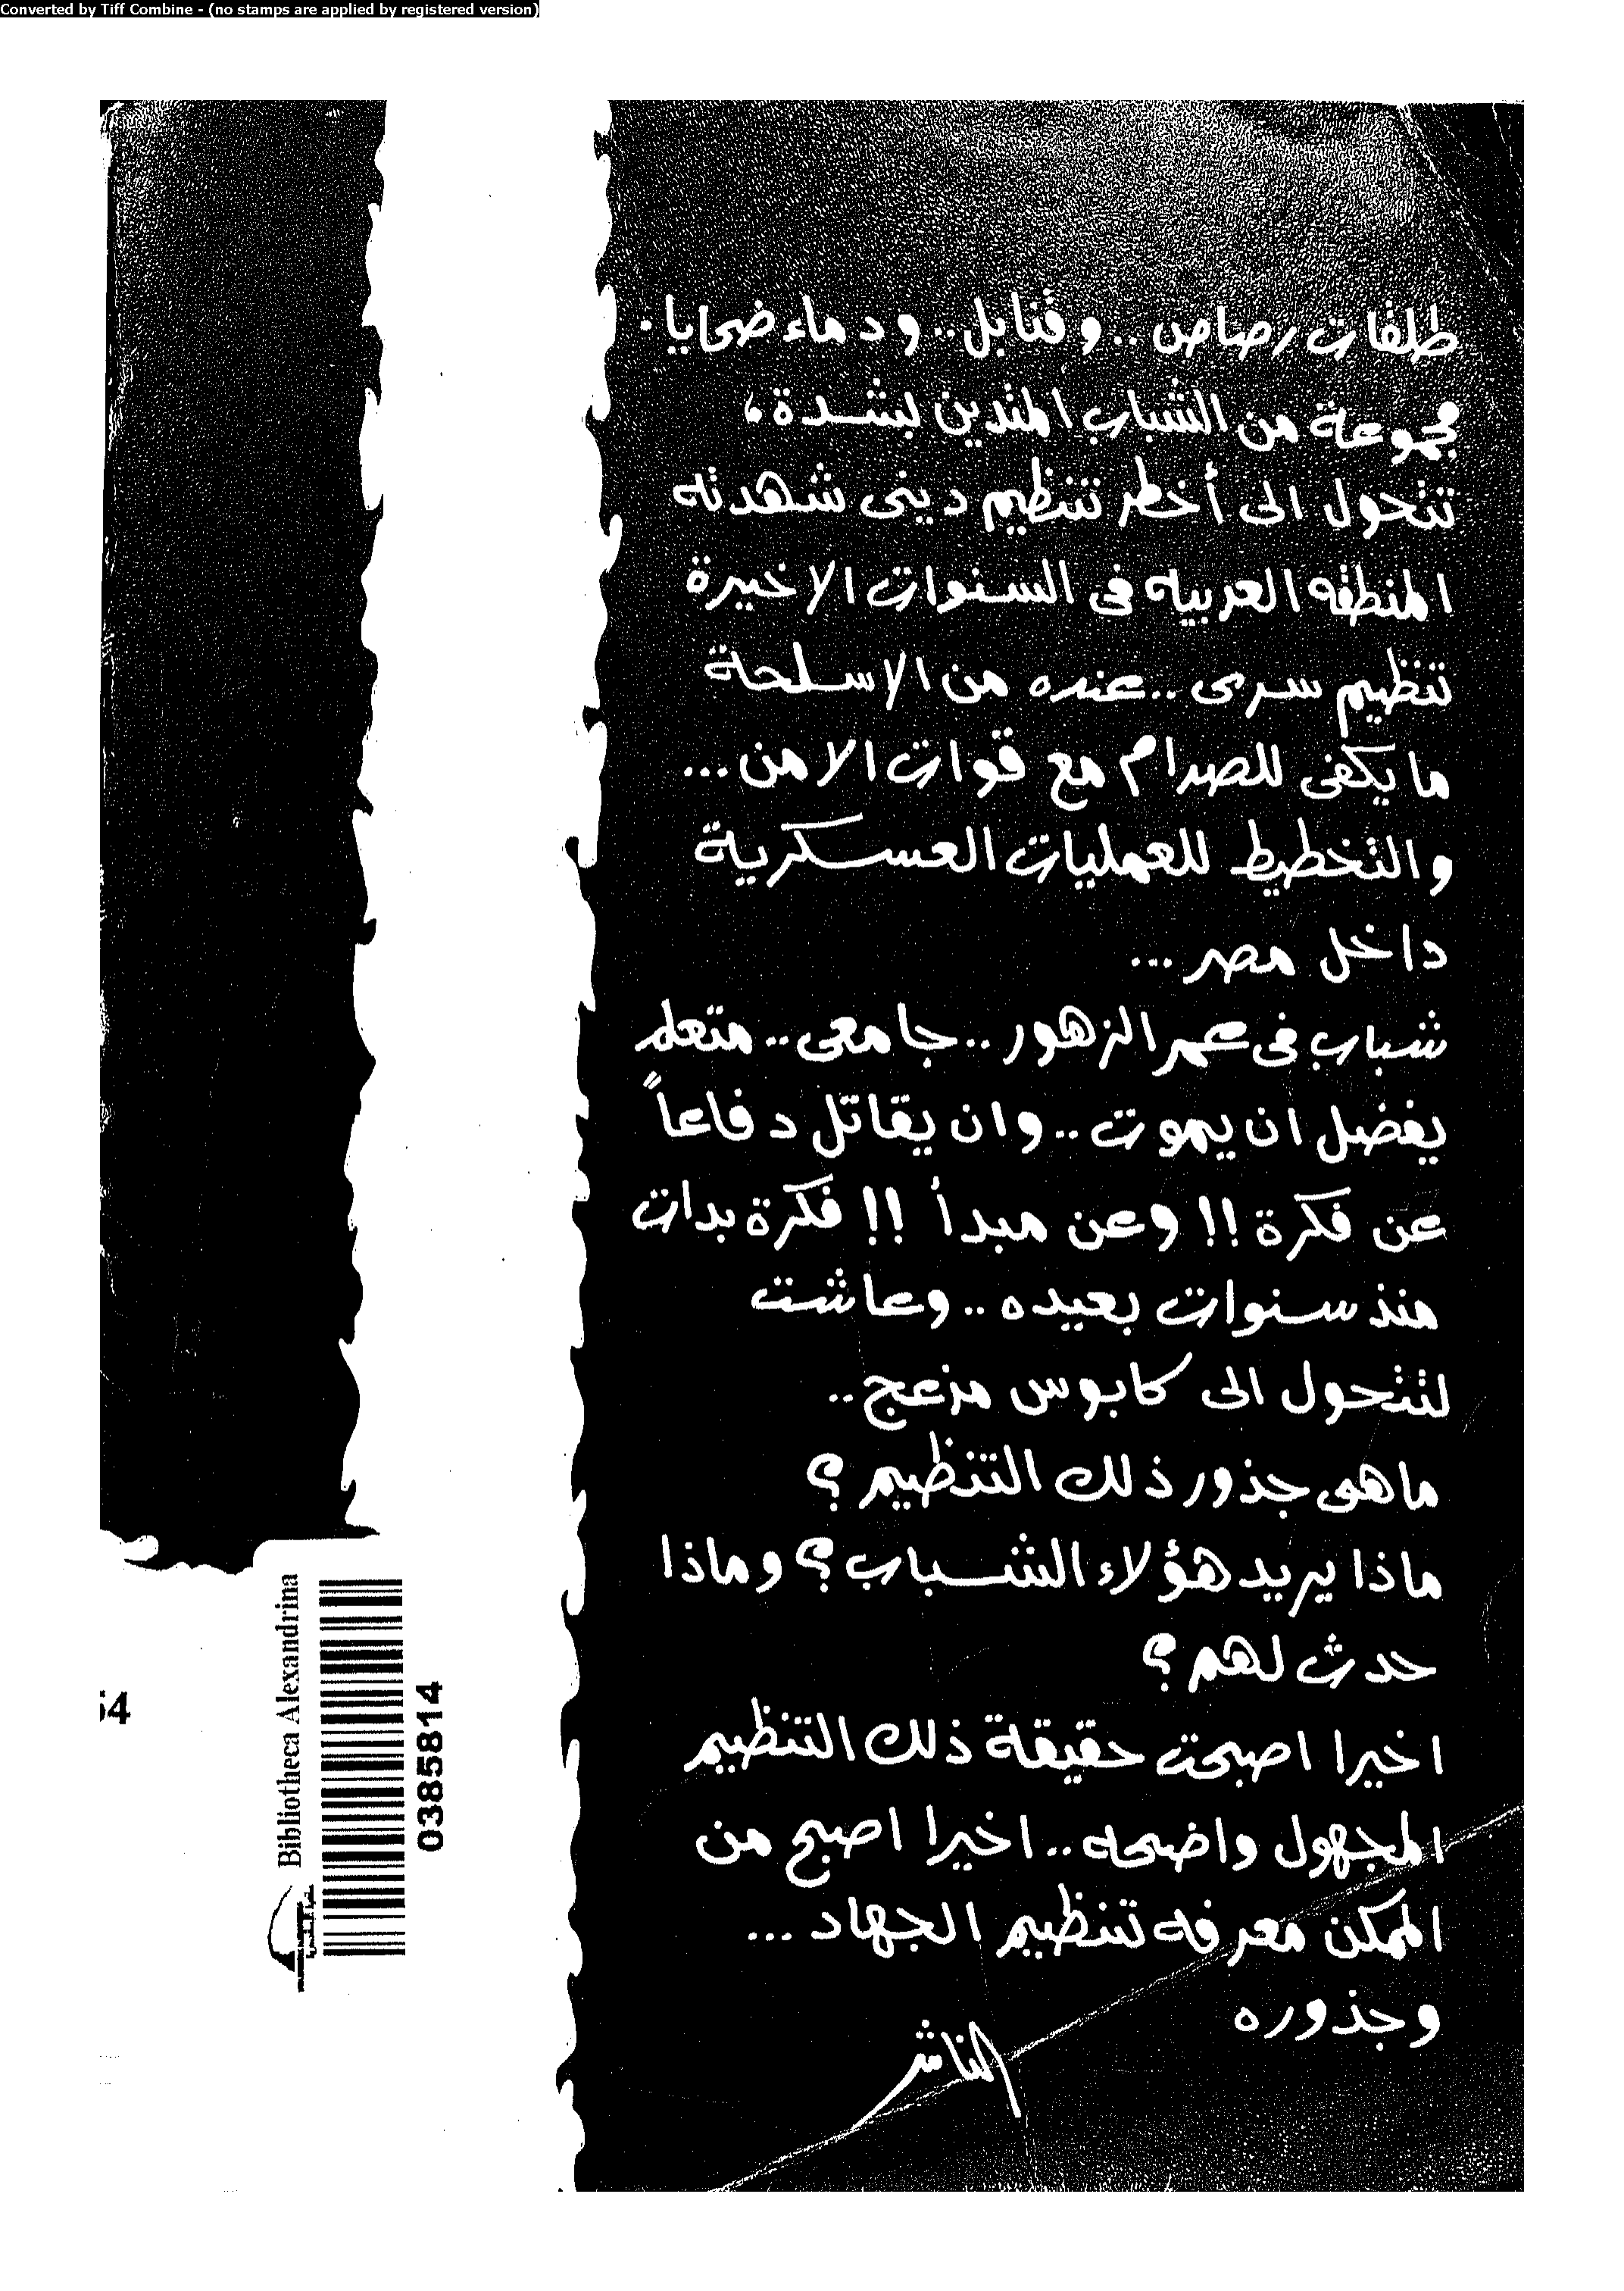 Converted by Tiff Combine - (no stamps are applied by registered version)
طلقات رصاص .. وقنابل .. ودماء ضحايا .
مجموعة من الشباب المتدين بشدة ،
تتحول الى أخطر تنظيم دينى شهدته
المنطقه العربيه فى السنوات الاخيرة
تنظيم سرى .. عنده من الاسلحة
ما يكفى للصدام مع قوات الامن ...
والتخطيط للعمليات العسكرية
داخل مصر ...
شباب فى عمر الزهور .. جامعى .. متعلم
يفضل ان يموت .. وان يقاتل دفاعاً
عن فكرة !! وعن مبدأ !! فكرة بدات
منذ سنوات بعيده .. وعاشت
لتتحول الى كابوس مزعج ..
ماهى جذور ذلك التنظيم ؟
ماذا يريد هؤلاء الشباب ؟ وماذا
حدث لهم ؟
اخيرا اصبحت حقيقة ذلك التنظيم
المجهول واضحه .. اخيرا اصبح من
الممكن معرفه تنظيم الجهاد ...
وجذوره
الناشر
Bibliotheca Alexandrina
0385814